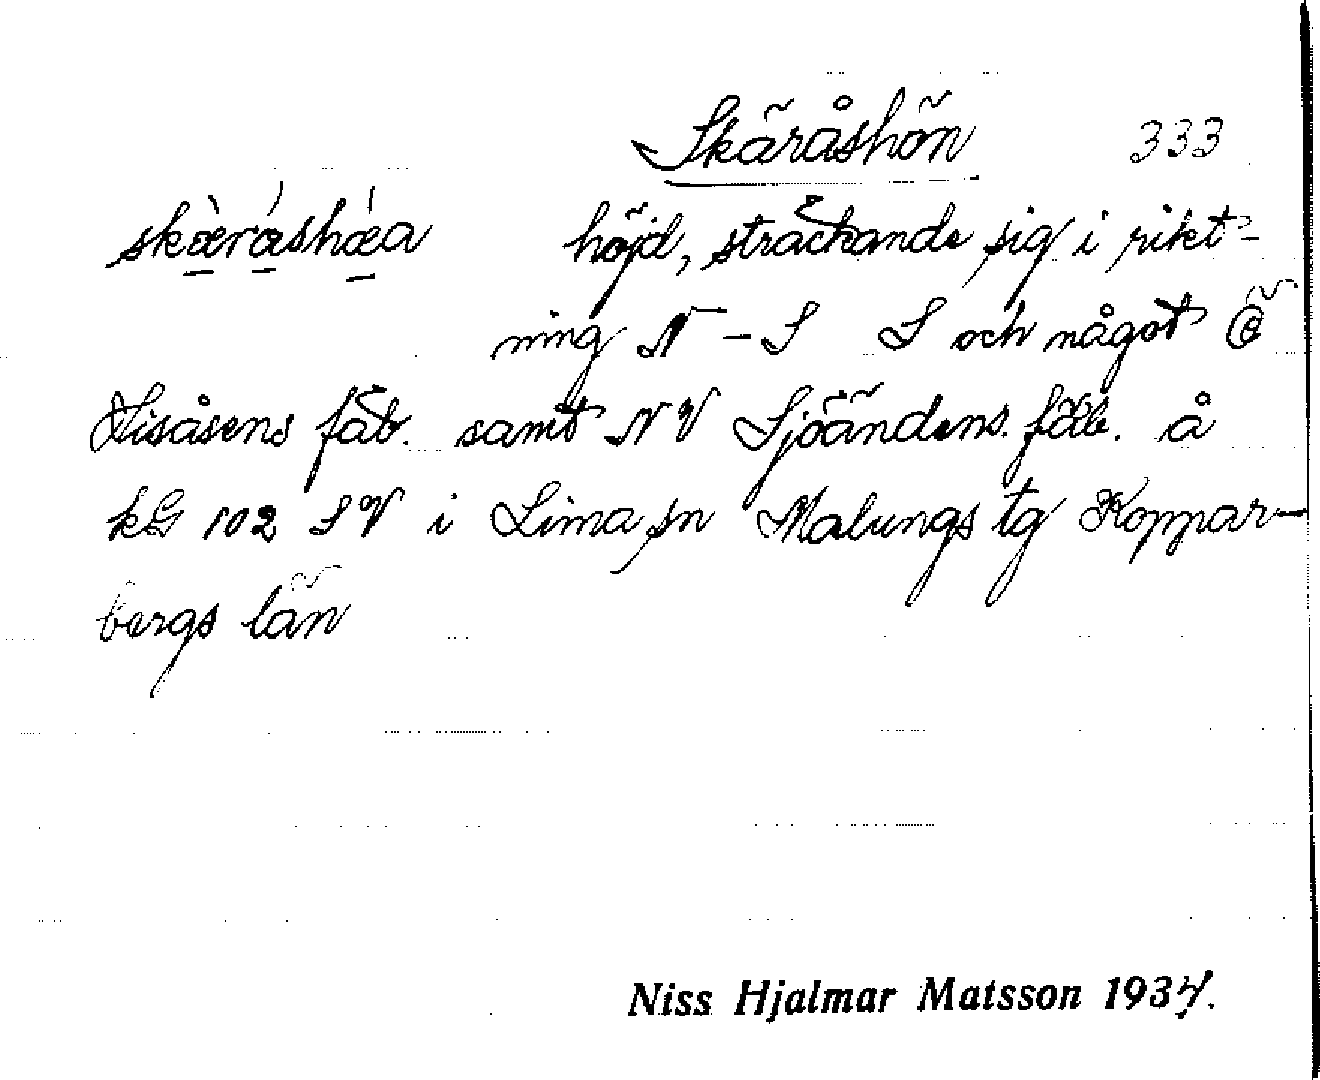 Skäråshön 333
skæ̀råshæa höjd, sträckande sig i rikt-
ning N – S S och något Ö
Lisåsens fäb. samt NV Sjöändens fäb. å
kG 102 SV i Lima sn Malungs tg Koppar-
bergs län
Niss Hjalmar Matsson 1937.